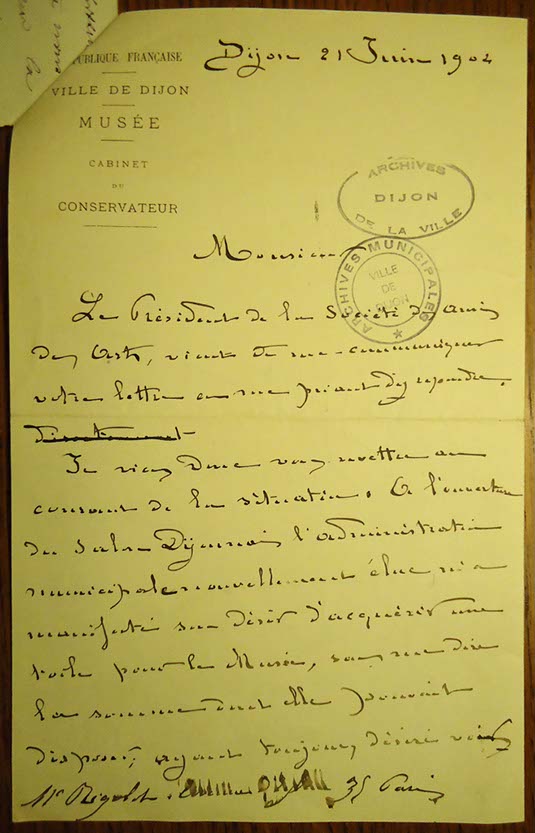 RÉPUBLIQUE FRANÇAISE
VILLE DE DIJON
MUSÉE
CABINET
DU
CONSERVATEUR
Dijon 21 Juin 1904
ARCHIVES
DIJON
DE LA VILLE
ARCHIVES MUNICIPALES
VILLE
DE
DIJON
Monsieur
Le Président de la Société des Amis
des Arts, vient de me communiquer
votre lettre en me priant d'y repondre.
directement
Je viens donc vous mettre au
courant de la situation. A l'ouverture
du Salon Dijonnais l'administration
municipale nouvellement élue m'a
manifesté son désir d'acquérir une
toile pour le Musée, sans me dire
la somme dont elle pouvait
disposer, ayant toujours désiré voir
Mr Rigolot
35 Paris